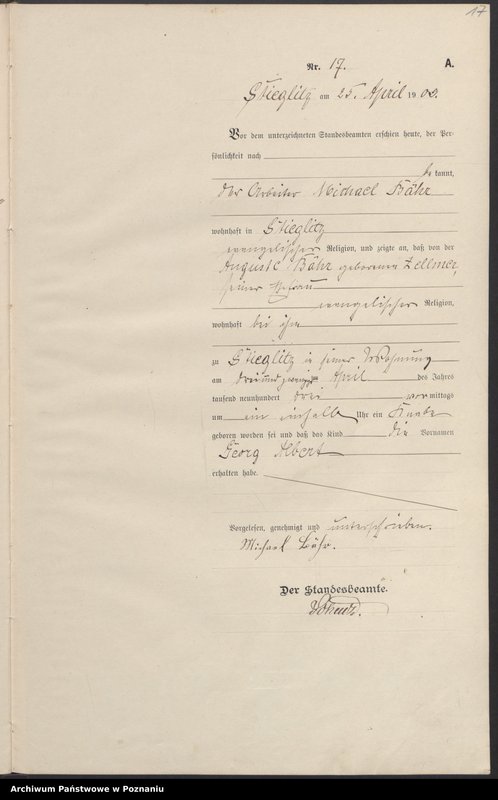 17
Nr. 17. A.
Stieglitz am 25. April 1903.
Vor dem unterzeichneten Standesbeamten erschien heute, der Per-
sönlichkeit nach
be kannt,
der Arbeiter Michael Bähr
wohnhaft in Stieglitz
evangelischer Religion, und zeigte an, daß von der
Auguste Bähr geborenen Zellmer,
seiner Ehefrau
evangelischer Religion,
wohnhaft bei ihm
zu Stieglitz in seiner Wohnung
am dreiundzwanzigsten April des Jahres
tausend neunhundert drei vor mittags
um ein einhalb Uhr ein Knabe
geboren worden sei und daß das Kind die Vornamen
Georg Albert
erhalten habe.
Vorgelesen, genehmigt und unterschrieben.
Michael Bähr.
Der Standesbeamte.
Archiwum Państwowe w Poznaniu